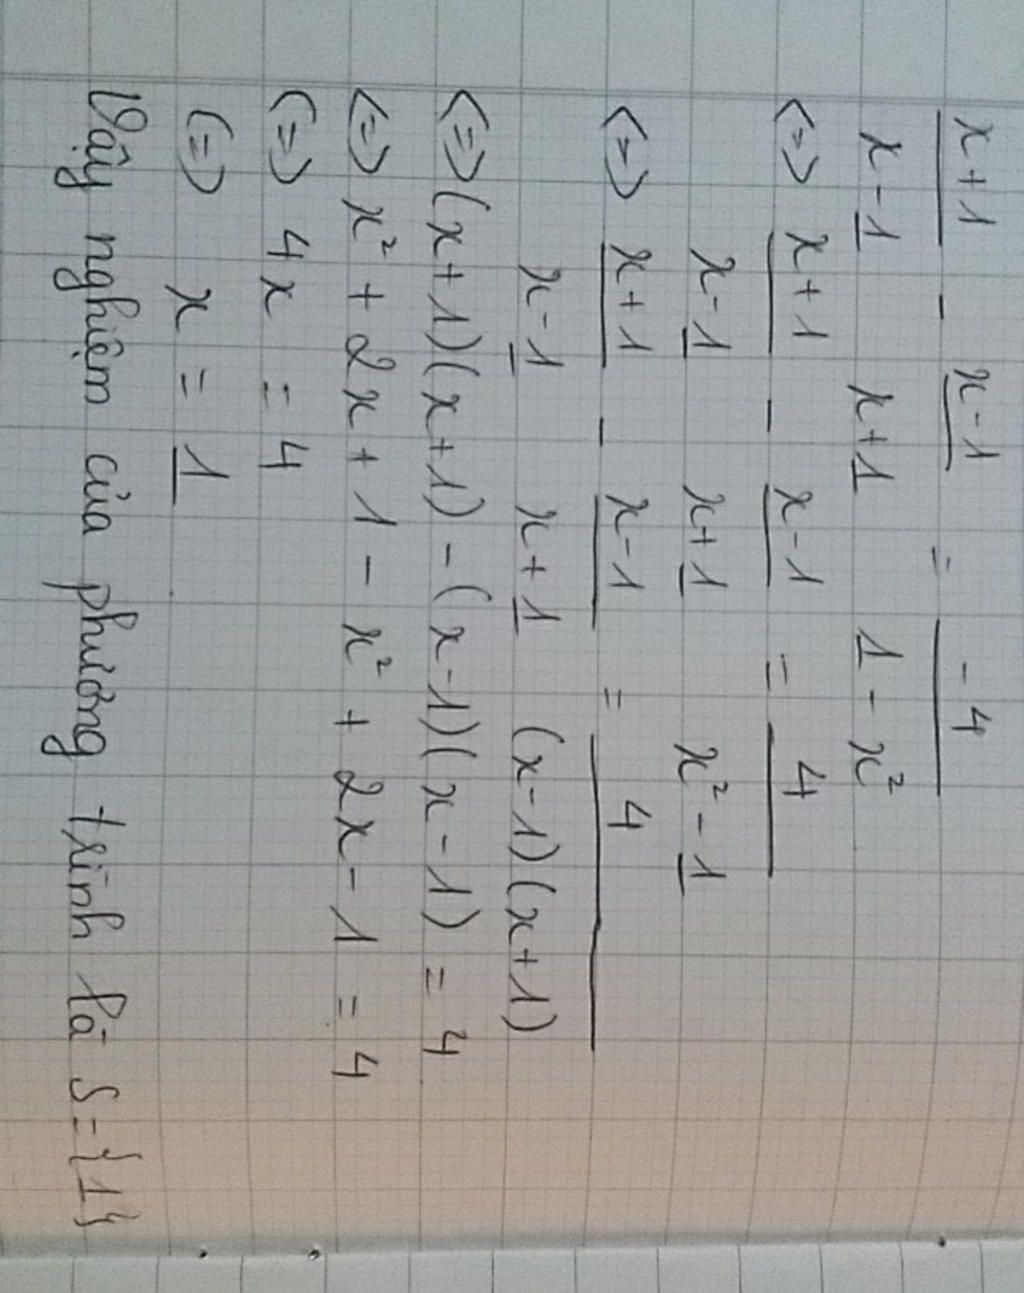 x+1/x-1 - x-1/x+1 = -4/1-x²
<=> x+1/x-1 - x-1/x+1 = 4/x²-1
<=> x+1/x-1 - x-1/x+1 = 4/(x-1)(x+1)
<=> (x+1)(x+1) - (x-1)(x-1) = 4
<=> x² + 2x + 1 - x² + 2x - 1 = 4
(=) 4x = 4
(=) x = 1
Vậy nghiệm của phương trình là S={1}